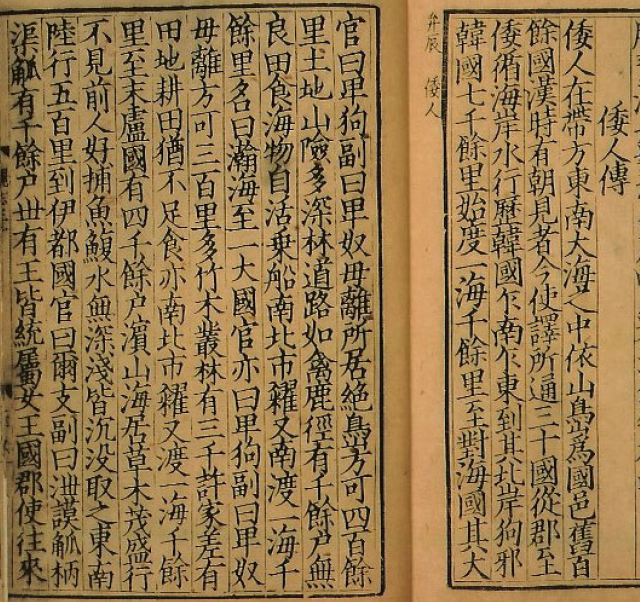 倭人傳
倭人在帶方東南大海之中依山㠀為國邑舊百
餘國漢時有朝見者今使譯所通三十國從郡至
倭循海岸水行歷韓國乍南乍東到其北岸狗邪
韓國七千餘里始度一海千餘里至對海國其大
弁辰 倭人
官曰卑狗副曰卑奴毋離所居絶㠀方可四百餘
里土地山險多深林道路如禽鹿徑有千餘户無
良田食海物自活乗船南北市糴又南渡一海千
餘里名曰瀚海至一大國官亦曰卑狗副曰卑奴
毋離方可三百里多竹木叢林有三千許家差有
田地耕田猶不足食亦南北市糴又渡一海千餘
里至末盧國有四千餘户濵山海居草木茂盛行
不見前人好捕魚鰒水無深淺皆沉没取之東南
陸行五百里到伊都國官曰爾支副曰泄謨觚柄
渠觚有千餘户丗有王皆統屬女王國郡使往來